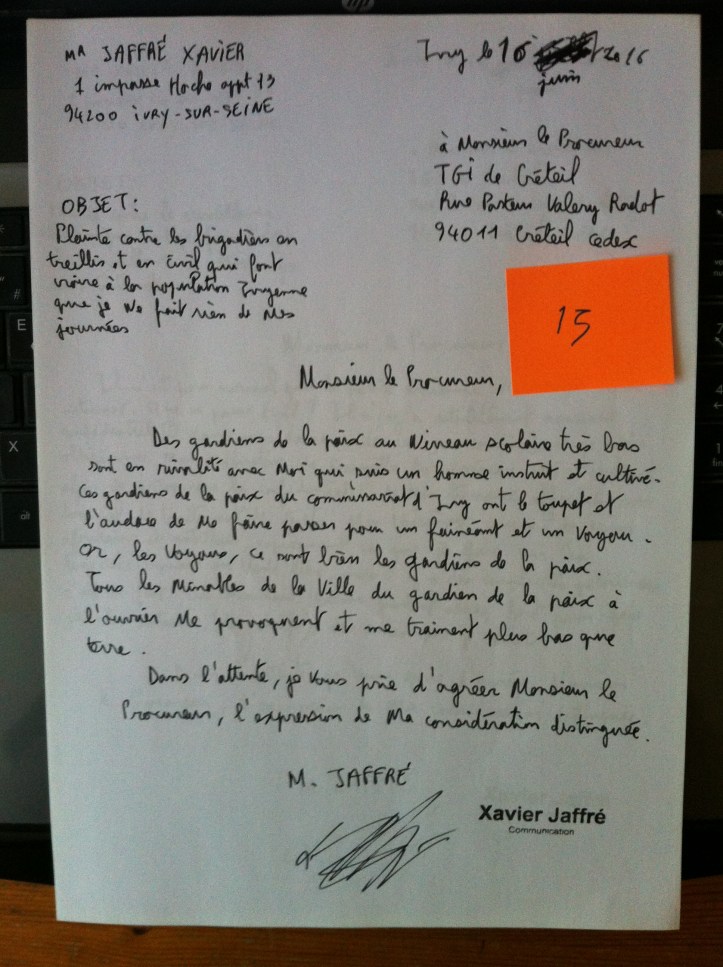 MR JAFFRÉ XAVIER
1 impasse Hoche appt 13
94200 IVRY-SUR-SEINE
Ivry le 16 2016
juin
à Monsieur le Procureur
TGI de Créteil
Rue Pasteur Valery Radot
94011 Créteil cedex
OBJET:
Plainte contre les brigadiers en
treillis et en civil qui font
croire à la population Ivryenne
que je ne fait rien de mes
journées
15
Monsieur le Procureur,
Des gardiens de la paix au Niveau scolaire très bas
sont en rivalité avec Moi qui suis un homme instruit et cultivé.
Ces gardiens de la paix du commissariat d'Ivry ont le toupet et
l'audace de Me faire passer pour un fainéant et un Voyou.
Or, les Voyous, ce sont bien les gardiens de la paix.
Tous les Minables de la Ville du gardien de la paix à
l'ouvrier Me provoquent et me trainent plus bas que
terre.
Dans l'attente, je Vous prie d'agréer Monsieur le
Procureur, l'expression de Ma considération distinguée.
M. JAFFRÉ
Xavier Jaffré
Communication